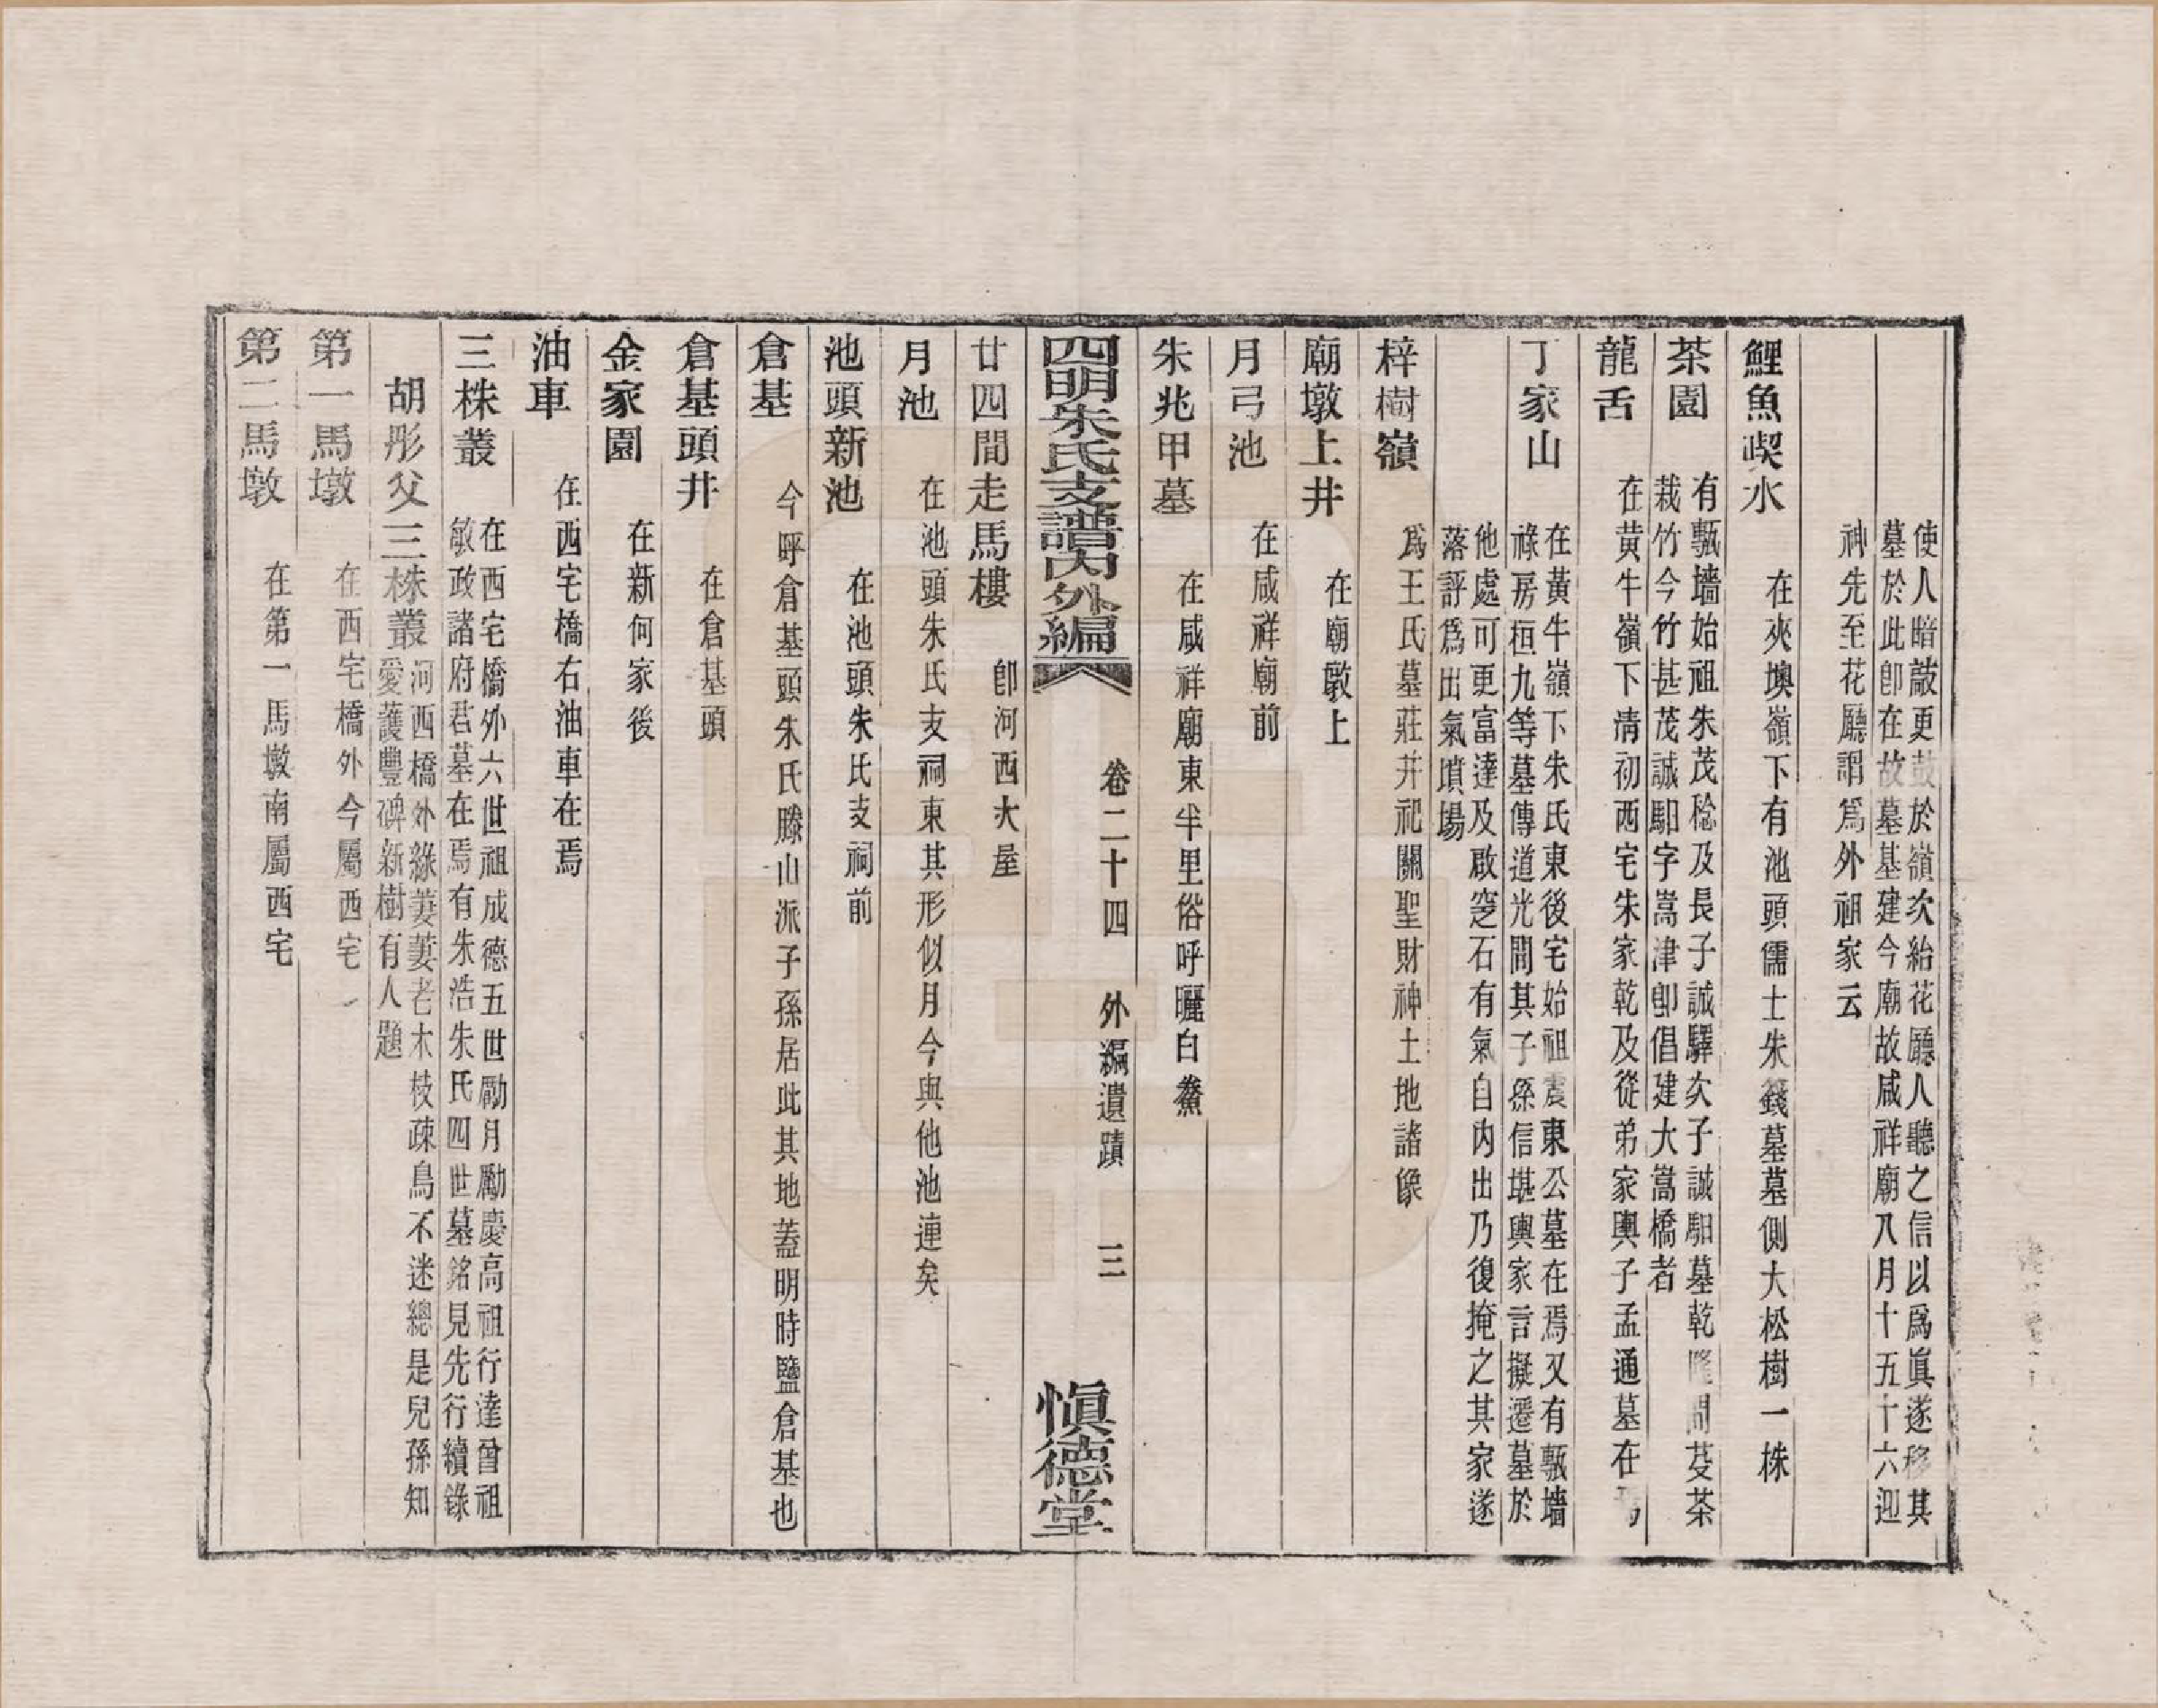 使人暗敲更鼓於嶺次紿花廳人聽之信以爲眞遂移其
墓於此卽在故墓基建今廟故咸祥廟八月十五十六迎
神先至花廳謂爲外祖家云
鯉魚喫水 在夾墺嶺下有池頭儒士朱籛墓墓側大松樹一株
茶園 有甎墻始祖朱茂稔及長子誠驛次子誠馹墓乾隆間芟茶
栽竹今竹甚茂誠馹字嵩津卽倡建大嵩橋者
龍舌 在黄牛嶺下清初西宅朱家乾及從弟家輿子孟通墓在
丁家山 在黃牛嶺下朱氏東後宅始祖震東公墓在焉又有甎墻
祿房桓九等墓傳道光間其子孫信堪輿家言擬遷墓於
他處可更富達及啟窆石有氣自内出乃復掩之其家遂
落評爲出氣墳場
梓樹嶺 爲王氏墓莊并祀關聖財神土地諸像
廟墩上井 在廟墩上
月弓池 在咸祥廟前
朱兆甲墓 在咸祥廟東半里俗呼曬白鯗
四明朱氏支譜内外編 卷二十四 外編遺蹟 三 愼德堂
廿四間走馬樓 卽河西大屋
月池 在池頭朱氏支祠東其形似月今與他池連矣
池頭新池 在池頭朱氏支祠前
倉基 今呼倉基頭朱氏滕山派子孫居此其地蓋明時鹽倉基也
倉基頭井 在倉基頭
金家園 在新何家後
油車 在西宅橋右油車在焉
三株叢 在西宅橋外六世祖成德五世勵月勵慶高祖行達曾祖
敏政諸府君墓在焉有朱浩朱氏四世墓銘見先行續錄
胡彤父三株叢 河西橋外綠萋萋老木枝疎鳥不迷總是兒孫知
愛護豐碑新樹有人題
第一馬墩 在西宅橋外今屬西宅
第二馬墩 在第一馬墩南屬西宅